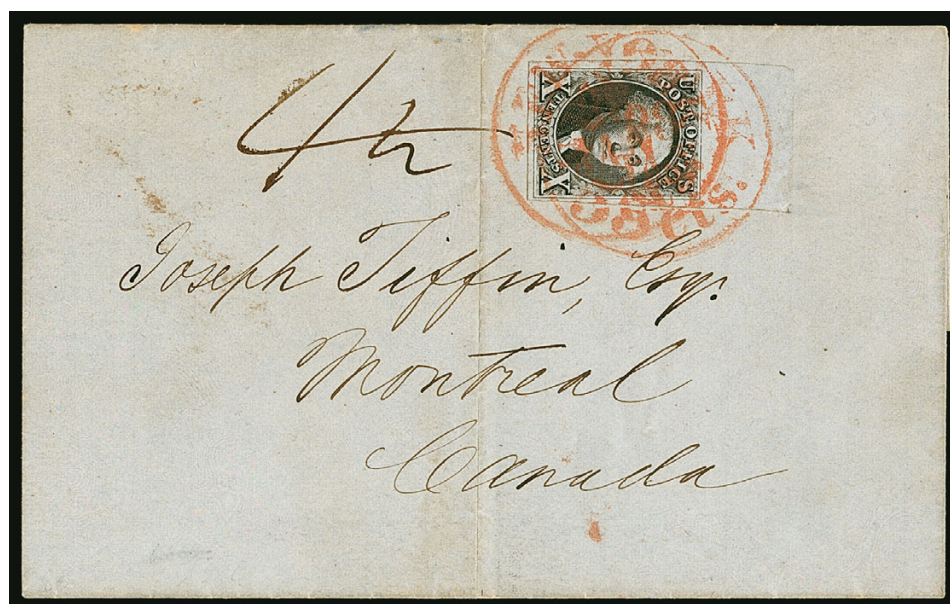 4½
U S
POST OFFICE
X TEN CENTS X
NEW YORK
5cts.
Joseph Tiffin, Esqr.
Montreal
Canada